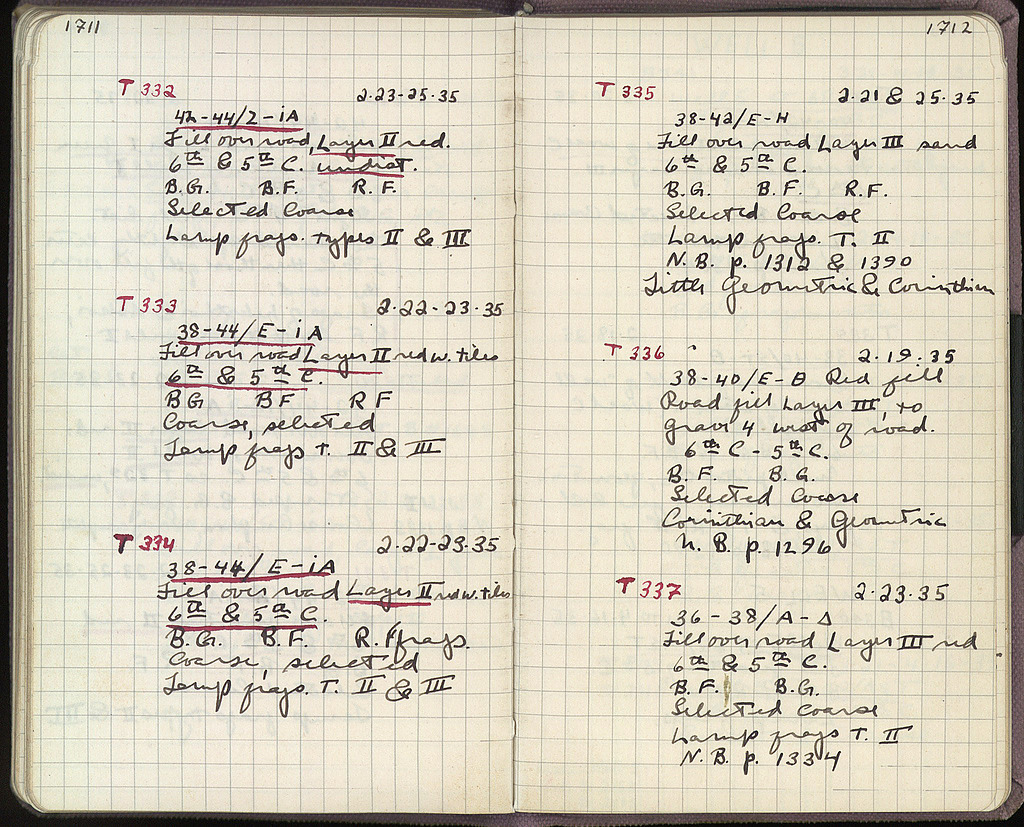 1711
T 332 2·23-25·35
42-44/Z-iA
Fill over road, Layer II red.
6th & 5th C. undist.
B.G. B.F. R.F.
Selected Coarse
Lamp frags. types II & III
T 333 2·22-23·35
38-44/E-iA
Fill over road Layer II red w. tiles
6th & 5th C.
BG BF RF
Coarse, selected
Lamp frags T. II & III
T 334 2·22-23·35
38-44/E-iA
Fill over road Layer II red w. tiles
6th & 5th C.
B.G. B.F. R.F. frags.
Coarse, selected
Lamp frags. T. II & III
1712
T 335 2·21 & 25·35
38-42/E-H
Fill over road Layer III sand
6th & 5th C.
B.G. B.F. R.F.
Selected Coarse
Lamp frags. T. II
N.B. p. 1312 & 1390
Little Geometric & Corinthian
T 336 2·19·35
38-40/E-Θ Red fill
Road fill Layer III, to
grave 4 west of road.
6th C - 5th C.
B.F. B.G.
Selected Coarse
Corinthian & Geometric
N.B. p. 1296
T 337 2·23·35
36-38/A-Δ
Fill over road Layer III red
6th & 5th C.
B.F. B.G.
Selected Coarse
Lamp frags T. II
N.B. p. 1334